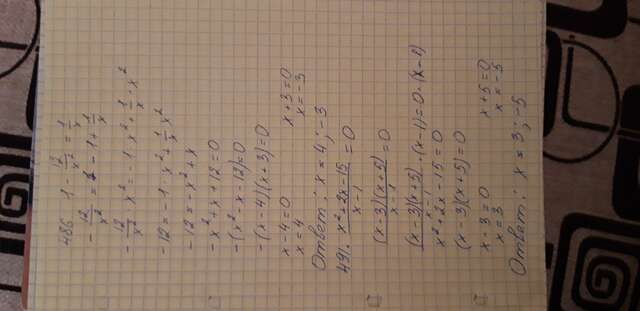 486 1 - 12/x² = 1/x
- 12/x² = - 1 + 1/x
- 12/x² · x² = - 1 · x² + 1/x · x²
- 12 = - 1 · x² + 1/x x²
- 12 = - x² + x
- x² + x + 12 = 0
- (x² - x - 12) = 0
- (x - 4)(x + 3) = 0
x - 4 = 0 x + 3 = 0
x = 4 x = - 3
Ответ: x = 4 ; -3
491. x² + 2x - 15 / x - 1 = 0
(x - 3)(x + 5) / x - 1 = 0
(x - 3)(x + 5) / x - 1 · (x - 1) = 0 · (x - 1)
x² + 2x - 15 = 0
(x - 3)(x + 5) = 0
x - 3 = 0 x + 5 = 0
x = 3 x = - 5
Ответ: x = 3 ; -5